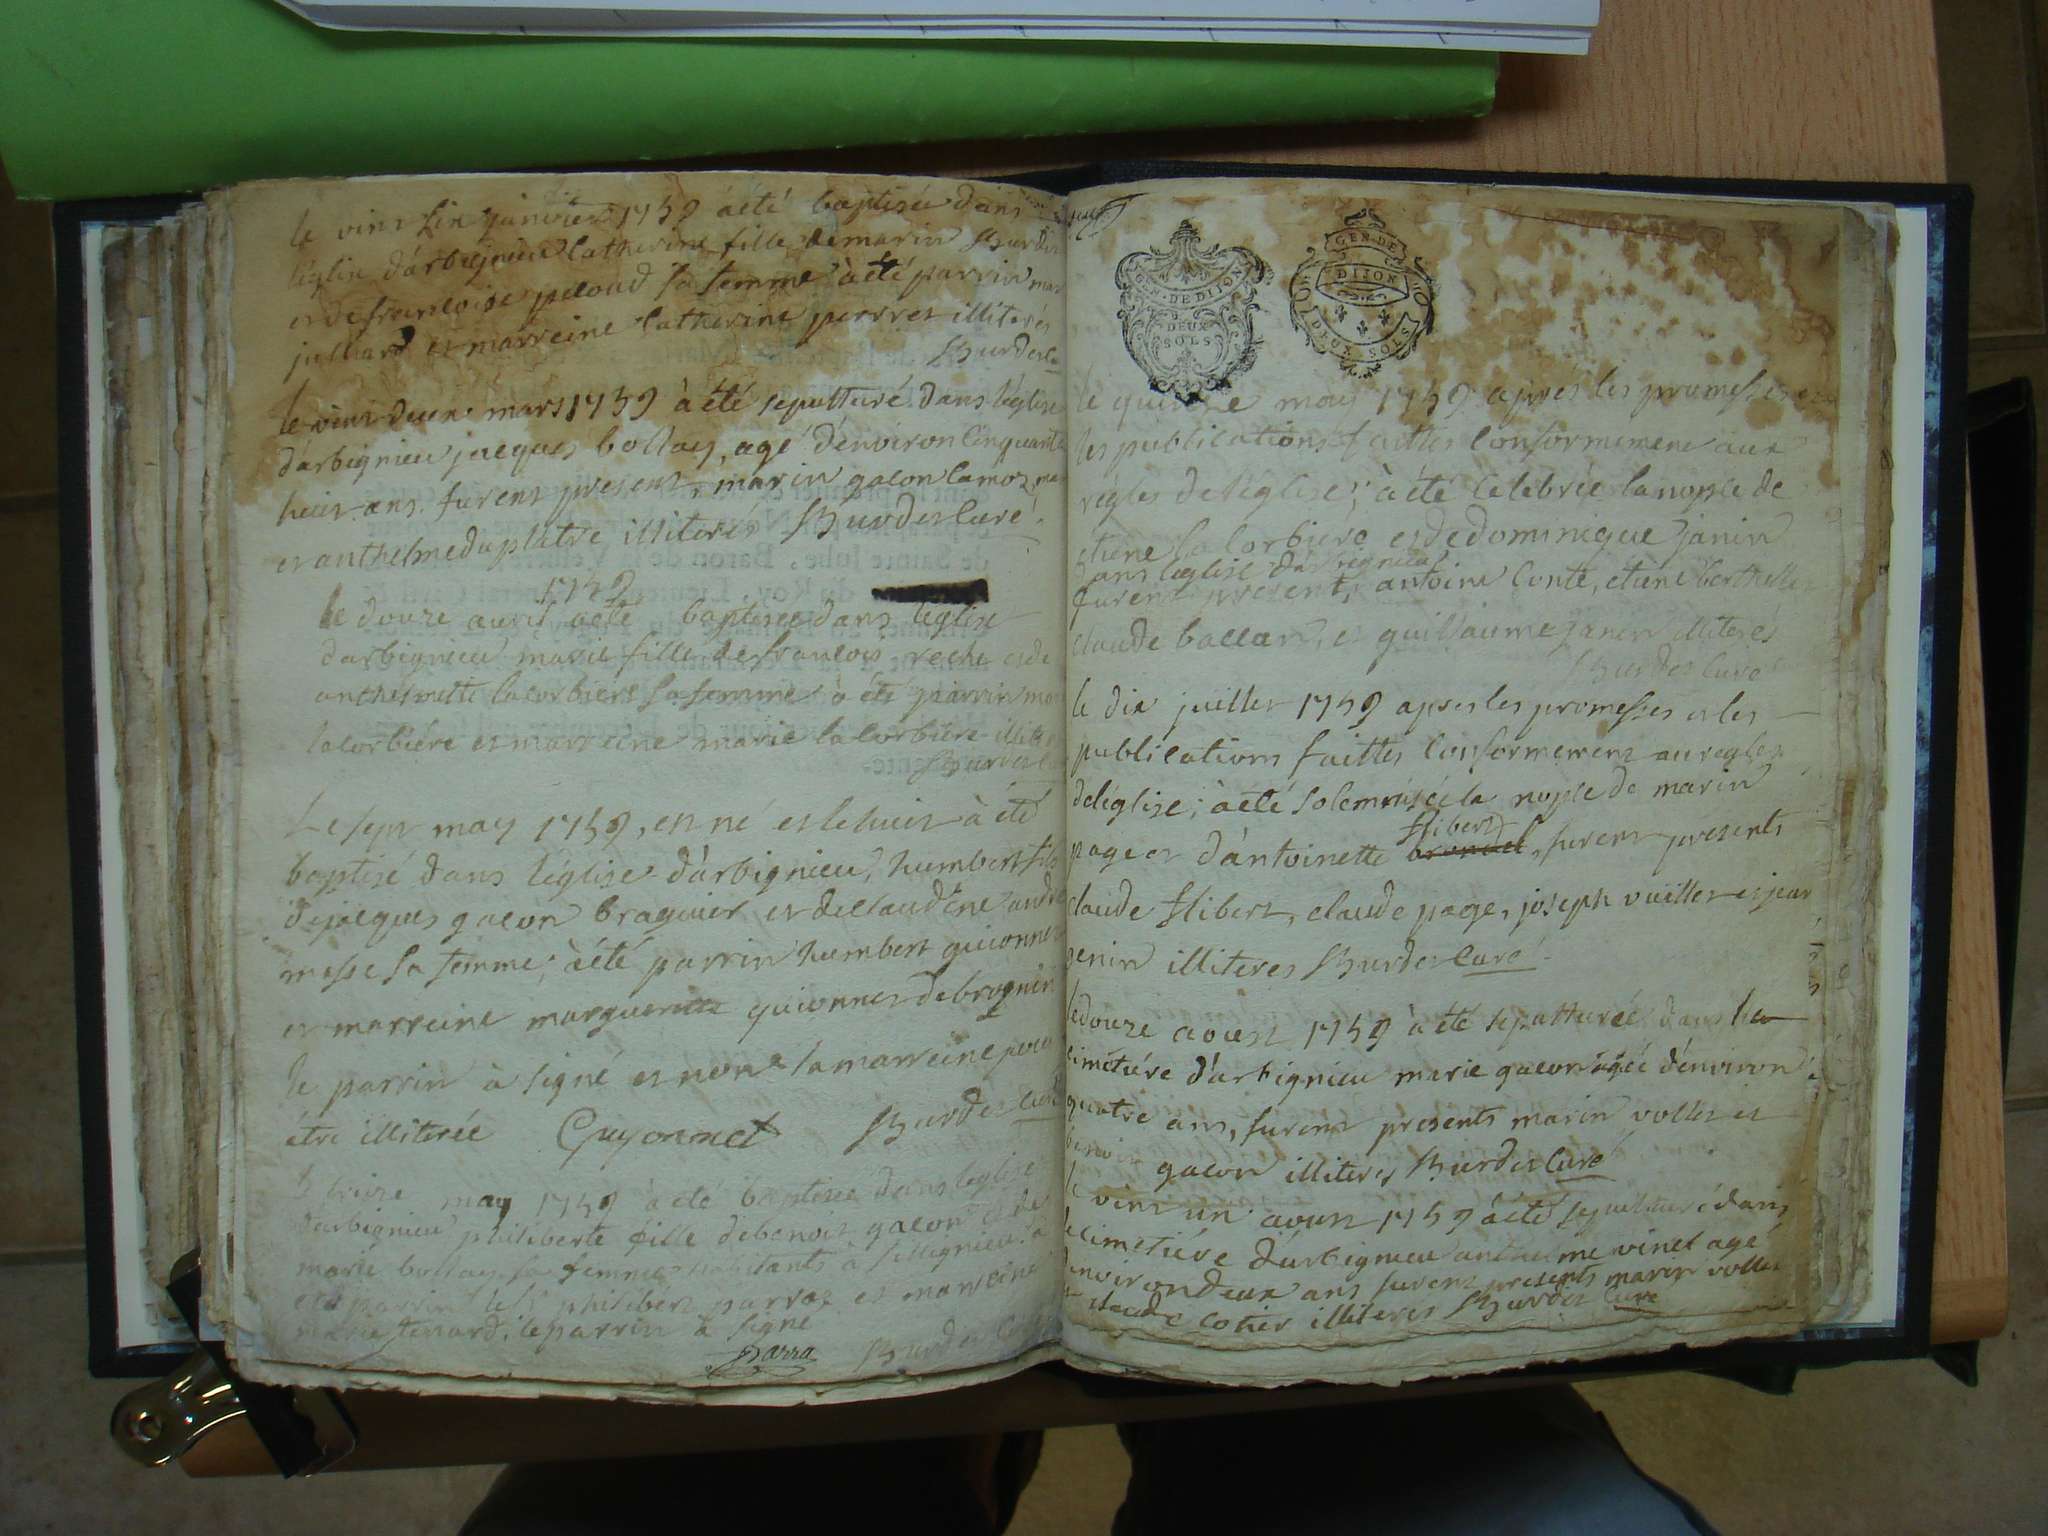 le vint cin janvier 1759 à été baptisée dans
l'église d'arbignieu Catherine fille de marin Burdin
et de francoise peloud sa femme à été parrin
julliard et marreine Catherine perret illiterés
Burdet
le vint deux mars 1759 à été sepulturé dans l'église
d'arbignieu jacques bollay, agé d'environ Cinquante
huit ans. furent present, marin gacon lamoz
et anthelme duplatre illiterés Burdet Curé
1759
le douze avril à été baptisée dans l'église
d'arbignieu marie fille de francois reche et de
anthelmette lacorbiere sa femme à été parrin
lacorbiére et marreine marie lacorbiére
Burdet
Le sept may 1759, est né et le huit à été
baptisé dans l'église d'arbignieu, humbert fils
de jacques gacon braguier et de Claudine
sa femme; à été parrin humbert guionnet
et marreine marguerite guionnet de brognin
le parrin à signé et non la marreine pour
être illiterée Guyonnet Burdet Curé
le treize may 1759 à été baptisée dans l'église
d'arbignieu philiberte fille de benoit gacon et de
marie bollay sa femme habitants à sillignieu à
été parrin philibert parraz et marreine
marie tenard, le parrin à signé
Parra Burdet
GEN. DE DIJON
DEUX
SOLS
GEN. DE
DIJON
DEUX SOLS
le quinze may 1759 après les promesses et
les publications faittes Conformement aux
régles de l'église; à été Celebrée la nopse de
etiene la Corbiere et de dominique janin
dans l'église d'arbignieu
furent present, antoine Conte, etiene berthelle
claude ballan, et guillaume janin illiterés
Burdet Curé
le dix juillet 1759 apres les promesses et les
publications faittes Conformement au regles
de l'église; à été solemnisée la nopse de marin
Hibert
page et d'antoinette , furent presents
claude Hibert, claude page, joseph vuillet et jean
jenin illiteres Burdet Curé
le douze aoust 1759 à été sepulturée dans le
cimetiére d'arbignieu marie gacon agée d'environ
quatre ans, furent presents marin vollet et
benoit gacon illiteres Burdet Curé
le vint un aoust 1759 à été sepulturé dans
le cimetiére d'arbignieu anthelme vinet agé
d'environ deux ans furent presents marin vollet
et claude Cotier illiteres Burdet Curé